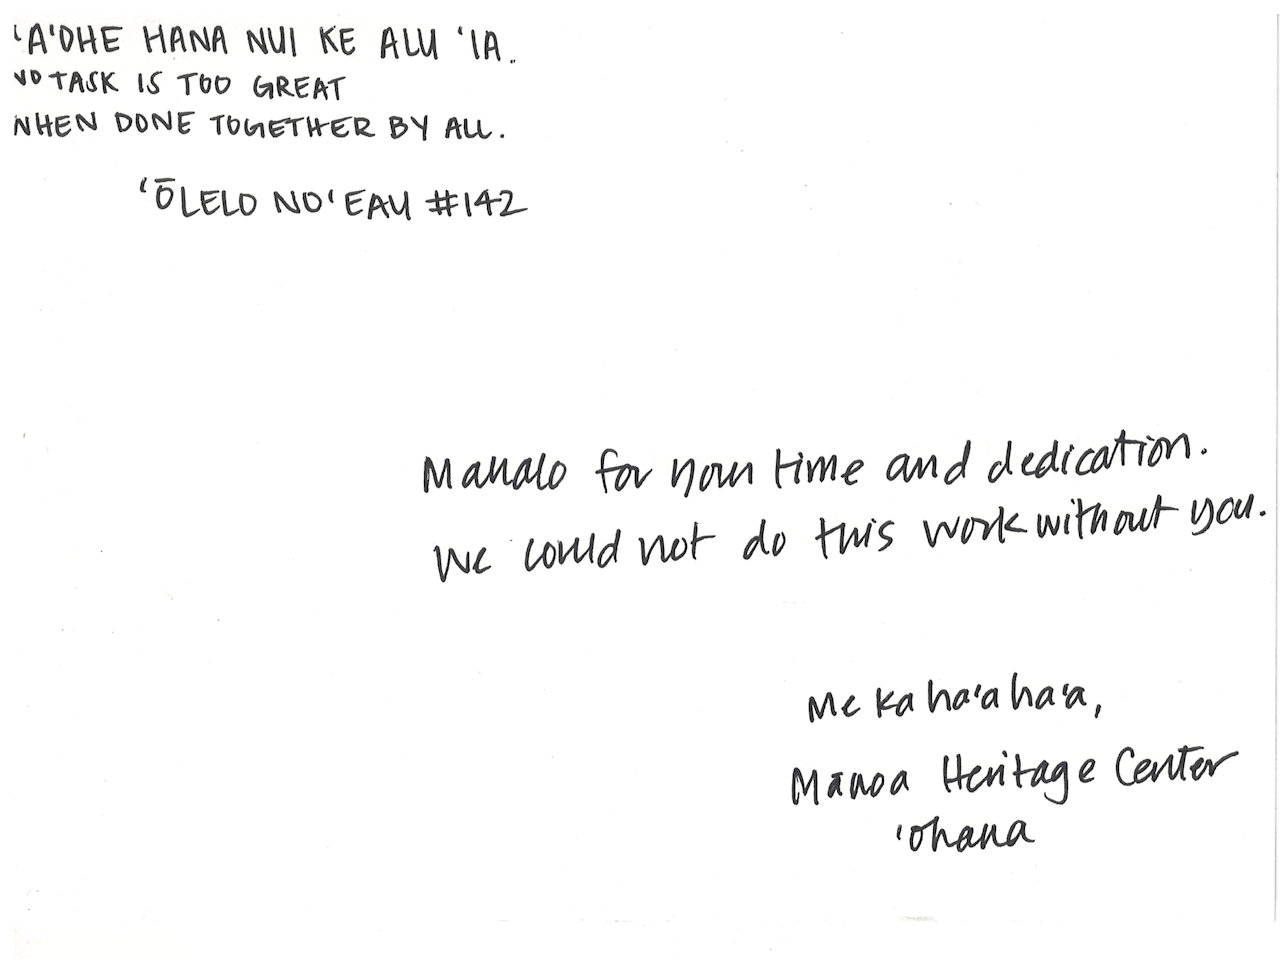 ʻAʻOHE HANA NUI KE ALU ʻIA.
NO TASK IS TOO GREAT
WHEN DONE TOGETHER BY ALL.
ʻŌLELO NOʻEAU #142
Mahalo for your time and dedication.
We could not do this work without you.
Me ka haʻahaʻa,
Mānoa Heritage Center
ʻohana